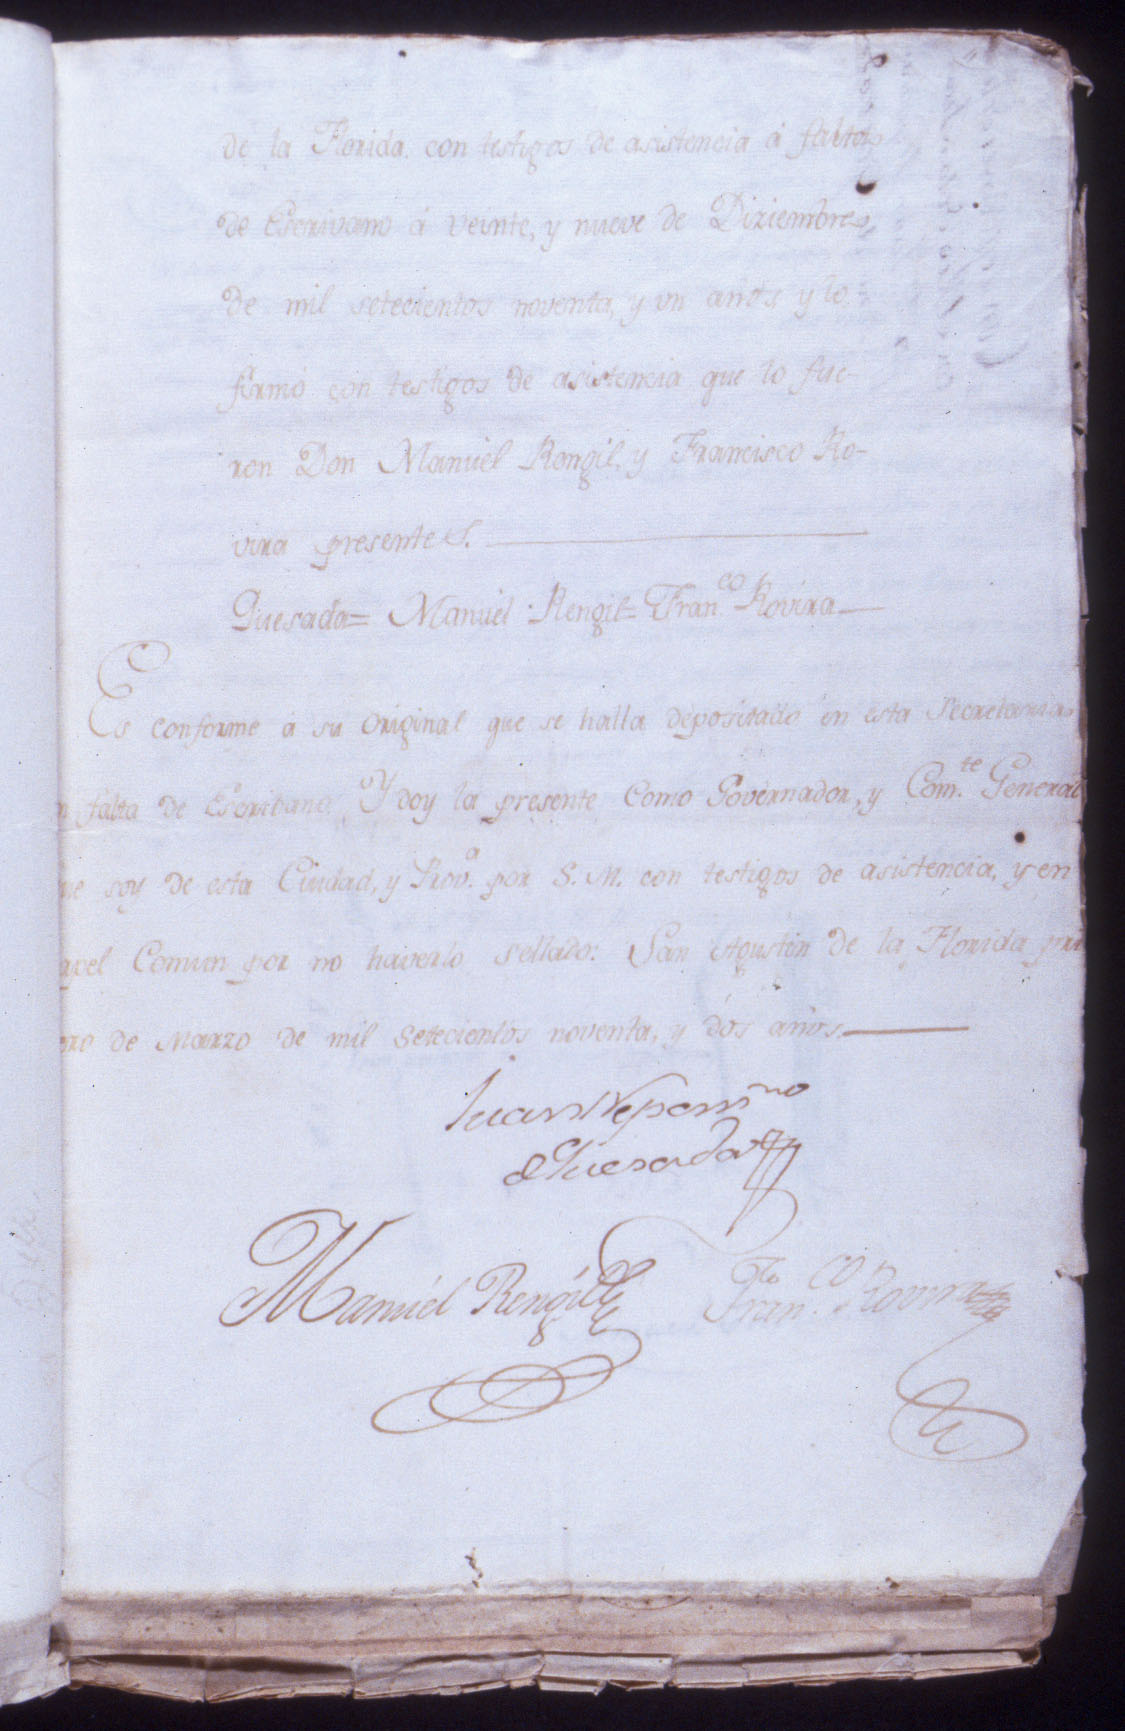 de la Florida con testigos de asistencia á falta
de Escrivano á veinte, y nueve de Diziembre
de mil setecientos noventa, y un años y lo
firmó con testigos de asistencia que lo fue-
ron Don Manuel Rengil, y Francisco Ro-
vira presentes.
Quesada= Manuel Rengil= Fran.co Rovira
Es conforme á su original que se halla depositado en esta Secretaria
falta de Escribano. Y doy la presente como Governador, y Com.te General
ue soy de esta Ciudad, y Prov.a por S. M. con testigos de asistencia, y en
apel Comun por no haverlo sellado: San Agustin de la Florida pri
ero de Marzo de mil setecientos noventa, y dós años.
Juan Nepom.no
de Quesada
Manuel Rengil Fran.co Rovira